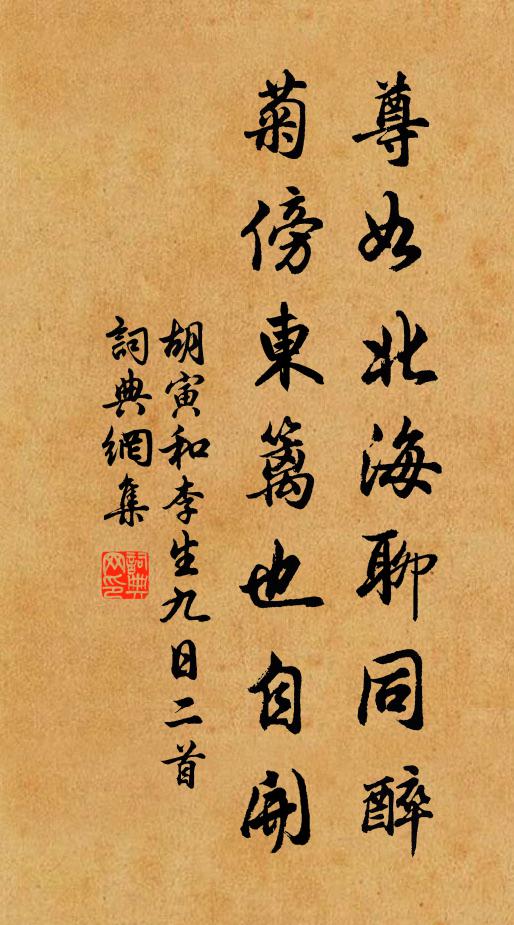 尊如北海聊同醉
菊傍東篱也自開
胡寅和李生九日二首
詞典網集
詞典网印